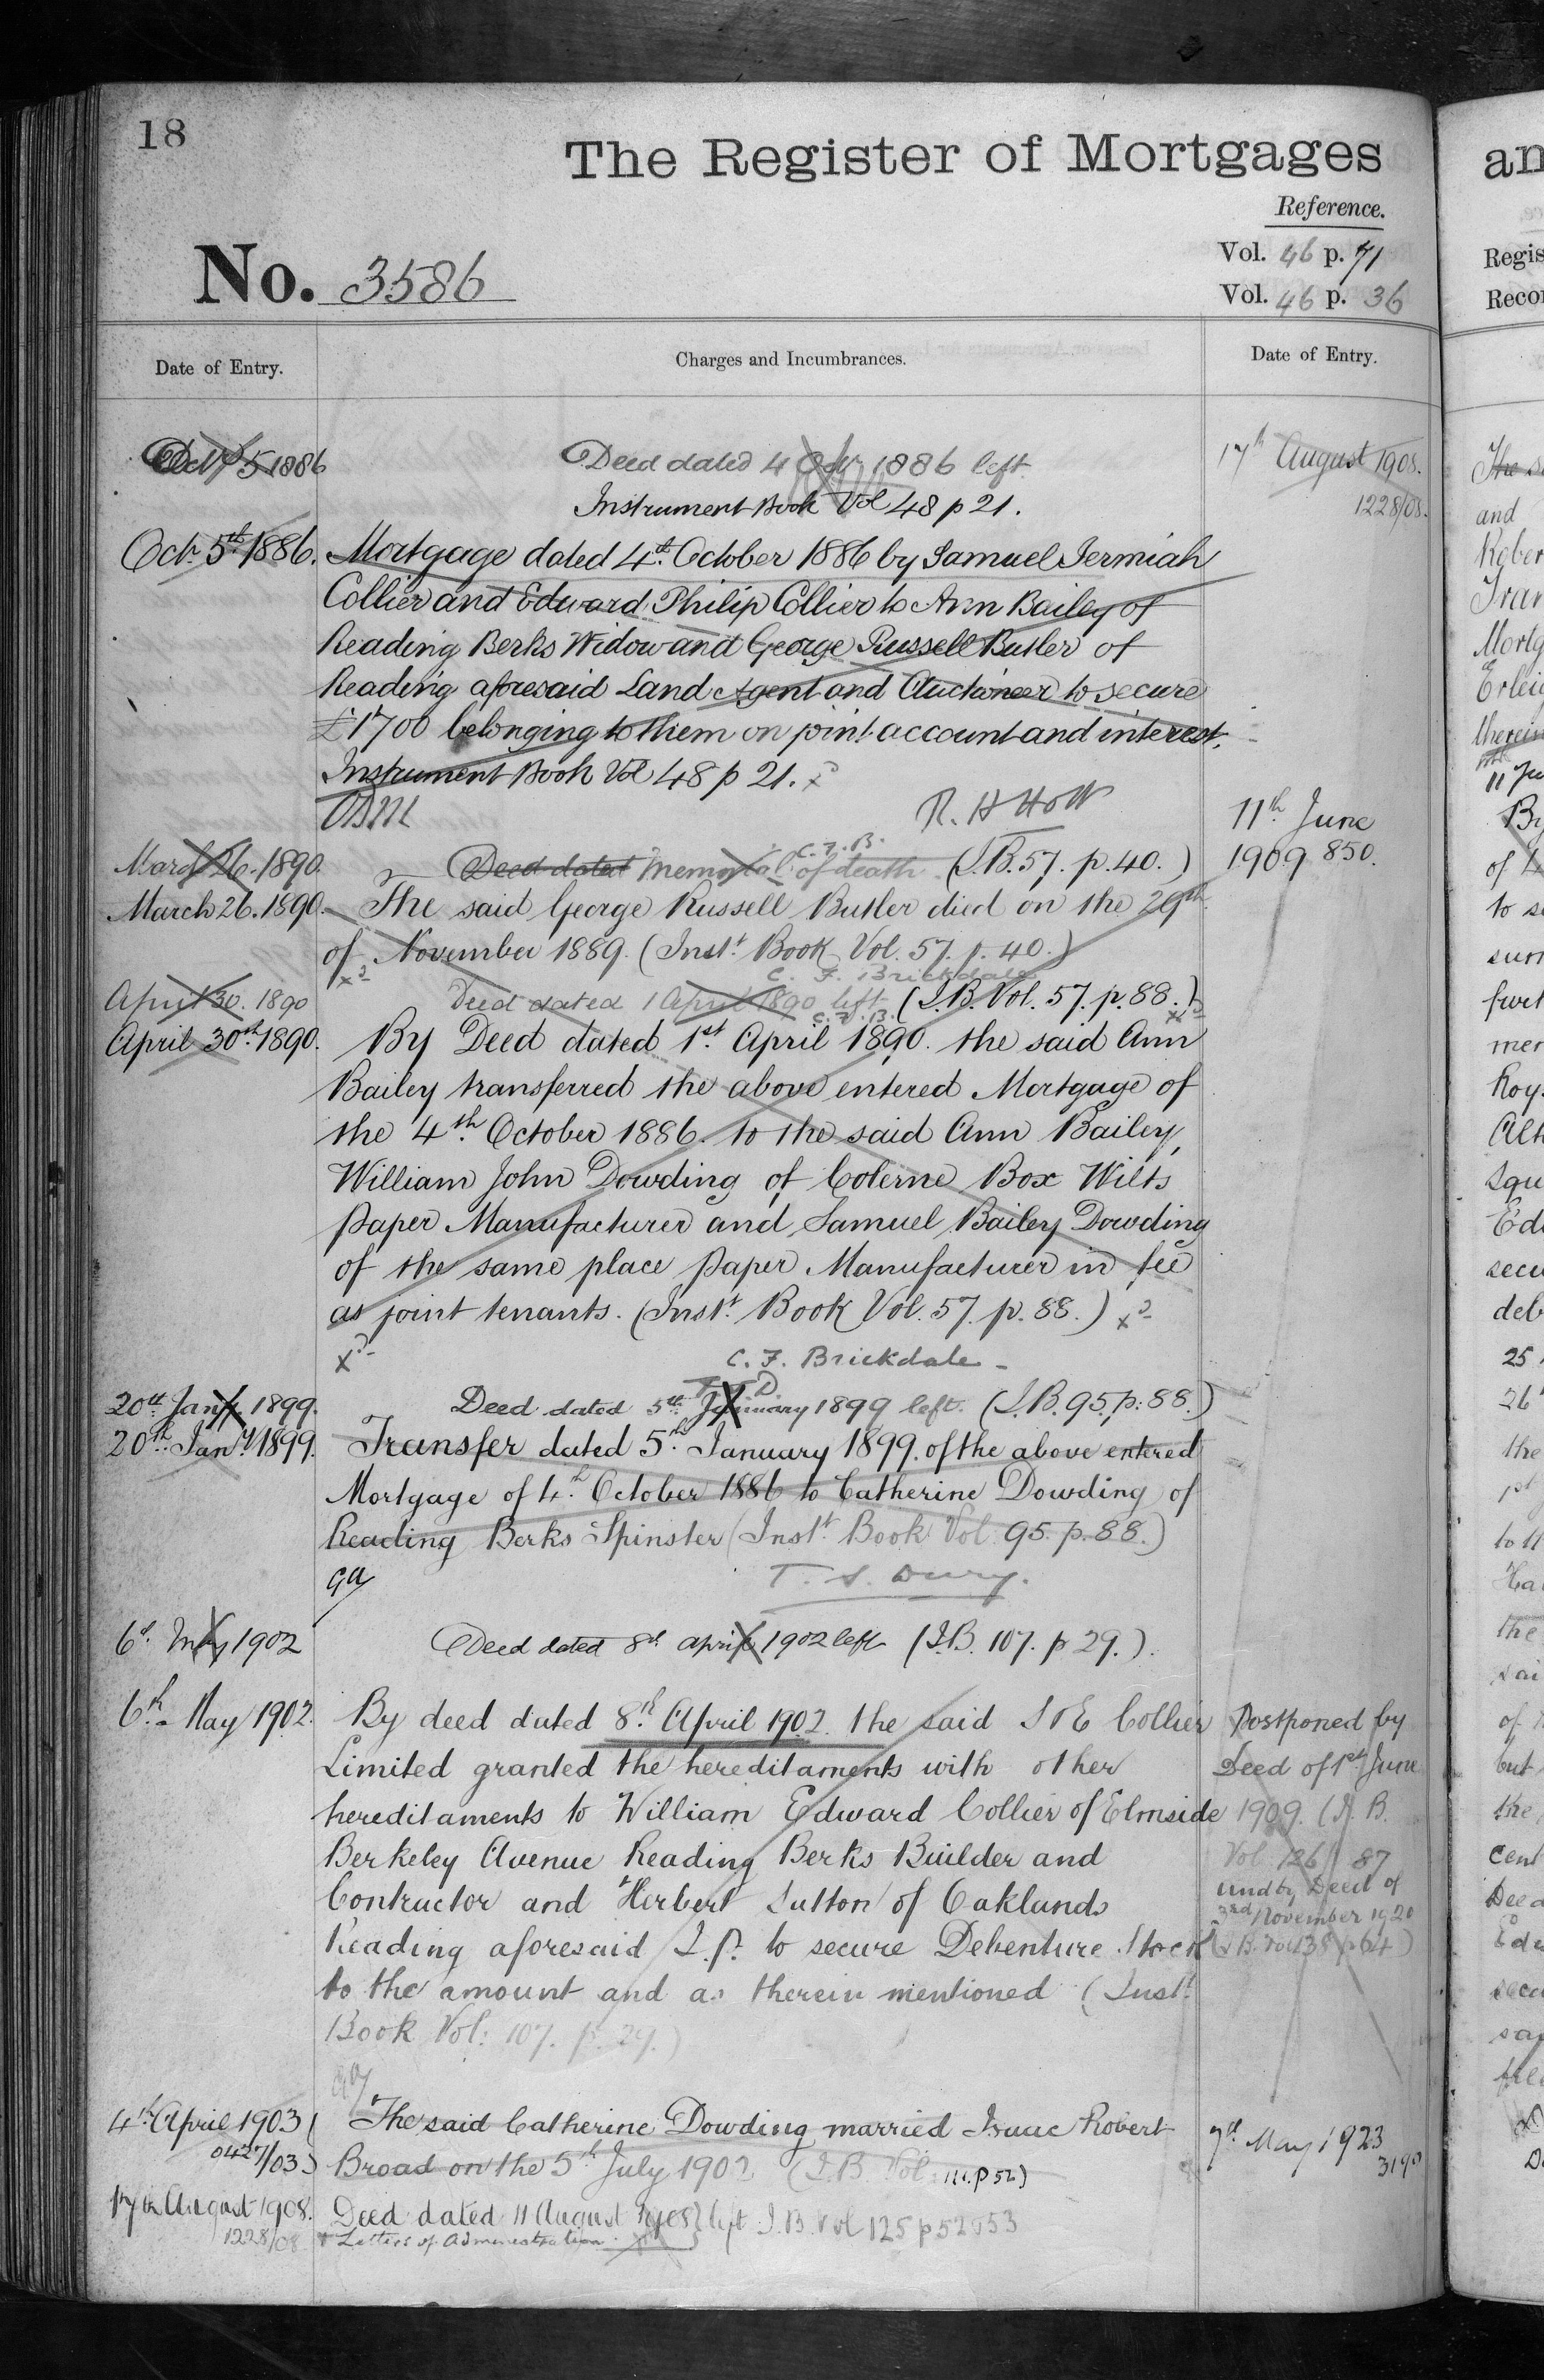 18
The Register of Mortgages
Reference.
No. 3586
Vol. 46 p. 71
Vol. 46 p. 36
Date of Entry.
Charges and Incumbrances.
Date of Entry.
Oct 5 1886
Deed dated 4 Oct 1886 left
Instrument Book Vol 48 p 21.
17th August 1908.
1228/08.
Octr. 5th 1886.
Mortgage dated 4th October 1886 by Samuel Jermiah
Collier and Edward Philip Collier to Ann Bailey of
Reading Berks Widow and George Russell Butler of
Reading aforesaid Land Agent and Auctioneer to secure
£1700 belonging to them on joint account and interest.
Instrument Book Vol 48 p 21.
R. H Holt
11th June
1909 850.
C. F. B.
March 26. 1890.
Deed dated Memorial of death (I.B. 57. p. 40.)
March 26. 1890.
The said George Russell Butler died on the 29th
of November 1889. (Inst. Book Vol. 57. p. 40.)
C. F. Brickdale
April 30. 1890
Deed dated 1 April 1890 left (I.B. Vol. 57. p. 88.)
C. F. B.
April 30th 1890.
By Deed dated 1st April 1890. the said Ann
Bailey transferred the above entered Mortgage of
the 4th October 1886. to the said Ann Bailey,
William John Dowding of Colerne Box Wilts
Paper Manufacturer and Samuel Bailey Dowding
of the same place Paper Manufacturer in fee
as joint tenants. (Inst. Book Vol. 57. p. 88.)
C. F. Brickdale
20th Jany. 1899.
Deed dated 5th January 1899 left. (I.B. 95. p: 88.)
20th Jany 1899.
Transfer dated 5th January 1899. of the above entered
Mortgage of 4th October 1886 to Catherine Dowding of
Reading Berks Spinster (Inst. Book Vol. 95. p. 88.)
T. S. Dury.
6th May 1902
Deed dated 8th April 1902 left (I.B. 107. p 29.).
6th May 1902.
By deed dated 8th April 1902. the said S & E Collier
Limited granted the hereditaments with other
hereditaments to William Edward Collier of Elmside
Berkeley Avenue Reading Berks Builder and
Contractor and Herbert Sutton of Oaklands
Reading aforesaid J.P. to secure Debenture Stock
to the amount and as therein mentioned (Inst.
Book Vol: 107. p. 29.)
Postponed by
Deed of 1st June
1909. (I. B.
Vol 126 p 87
and by Deed of
3rd November 1920
(I B. Vol 138 p 64)
4th April 1903
0427/03
The said Catherine Dowding married Isaac Robert
Broad on the 5th July 1902 (I.B. Vol: 111. p 52)
7th May 1923
17th August 1908.
1228/08
Deed dated 11 August 1908 left I.B. Vol 125 p 52 & 53
& Letters of Administration
an
Regis
Recor
and
Rober
Tran
Mortg
Erleig
therein
11 Ju
By
of 4
to se
sum
furt
mer
Roy.
Squ
Edw
secu
deb
25
26
the
1st
to th
Ha
the
sai
but
the
cent
Deed
secu